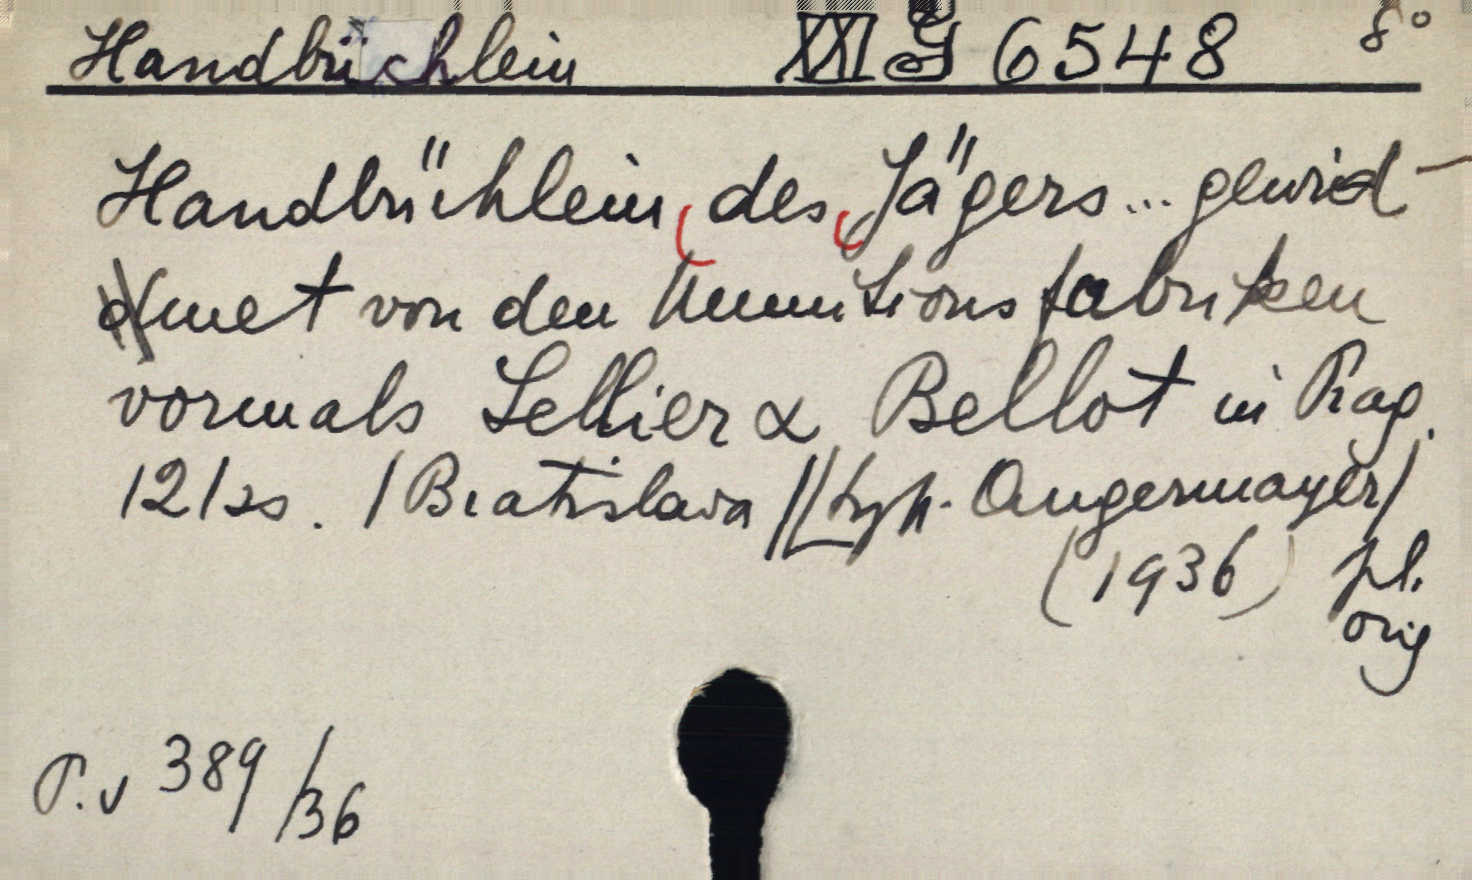 Handbüchlein XXI G 6548 8°
Handbüchlein des Jägers... gewid-
met von den Munitionsfabriken
vormals Sellier & Bellot in Prag.
12/ss. /Bratislava/ [typ. Angermayer/
(1936) pl.
orig
P.v 389/36